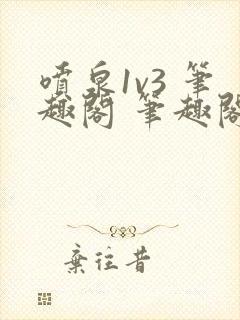 噴泉1v3 筆
趣閣 筆趣閣
棄往昔